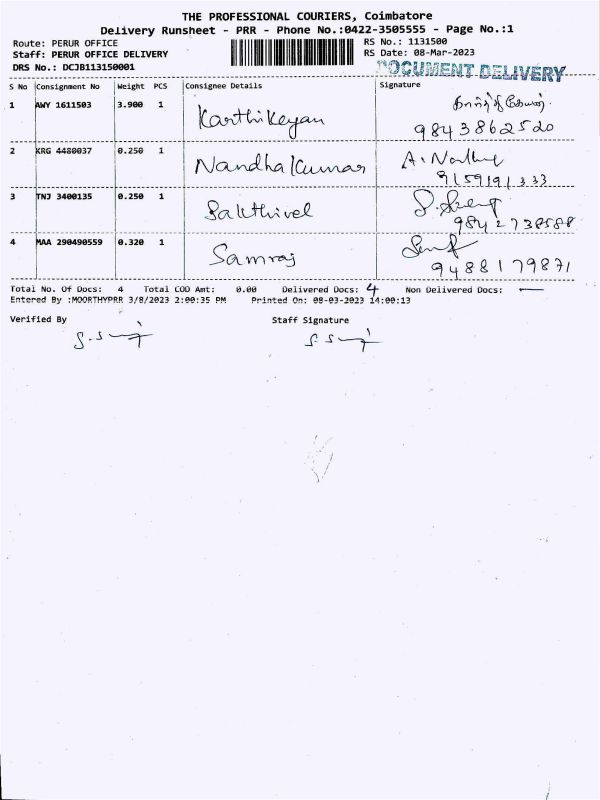 THE PROFESSIONAL COURIERS, Coimbatore
Delivery Runsheet - PRR - Phone No.:0422-3505555 - Page No.:1
Route: PERUR OFFICE RS No.: 1131500
Staff: PERUR OFFICE DELIVERY RS Date: 08-Mar-2023
DRS No.: DCJB113150001 DOCUMENT DELIVERY
S No Consignment No Weight PCS Consignee Details Signature
1 AWY 1611503 3.900 1 Karthikeyan
9843862520
2 KRG 4480037 0.250 1 Nandhakumar
9159191333
3 TNJ 3400135 0.250 1 Sakthivel
9842738588
4 MAA 290490559 0.320 1 Samraj
9488179871
Total No. Of Docs: 4 Total COD Amt: 0.00 Delivered Docs: 4 Non Delivered Docs: —
Entered By :MOORTHYPRR 3/8/2023 2:00:35 PM Printed On: 08-03-2023 14:00:13
Verified By Staff Signature